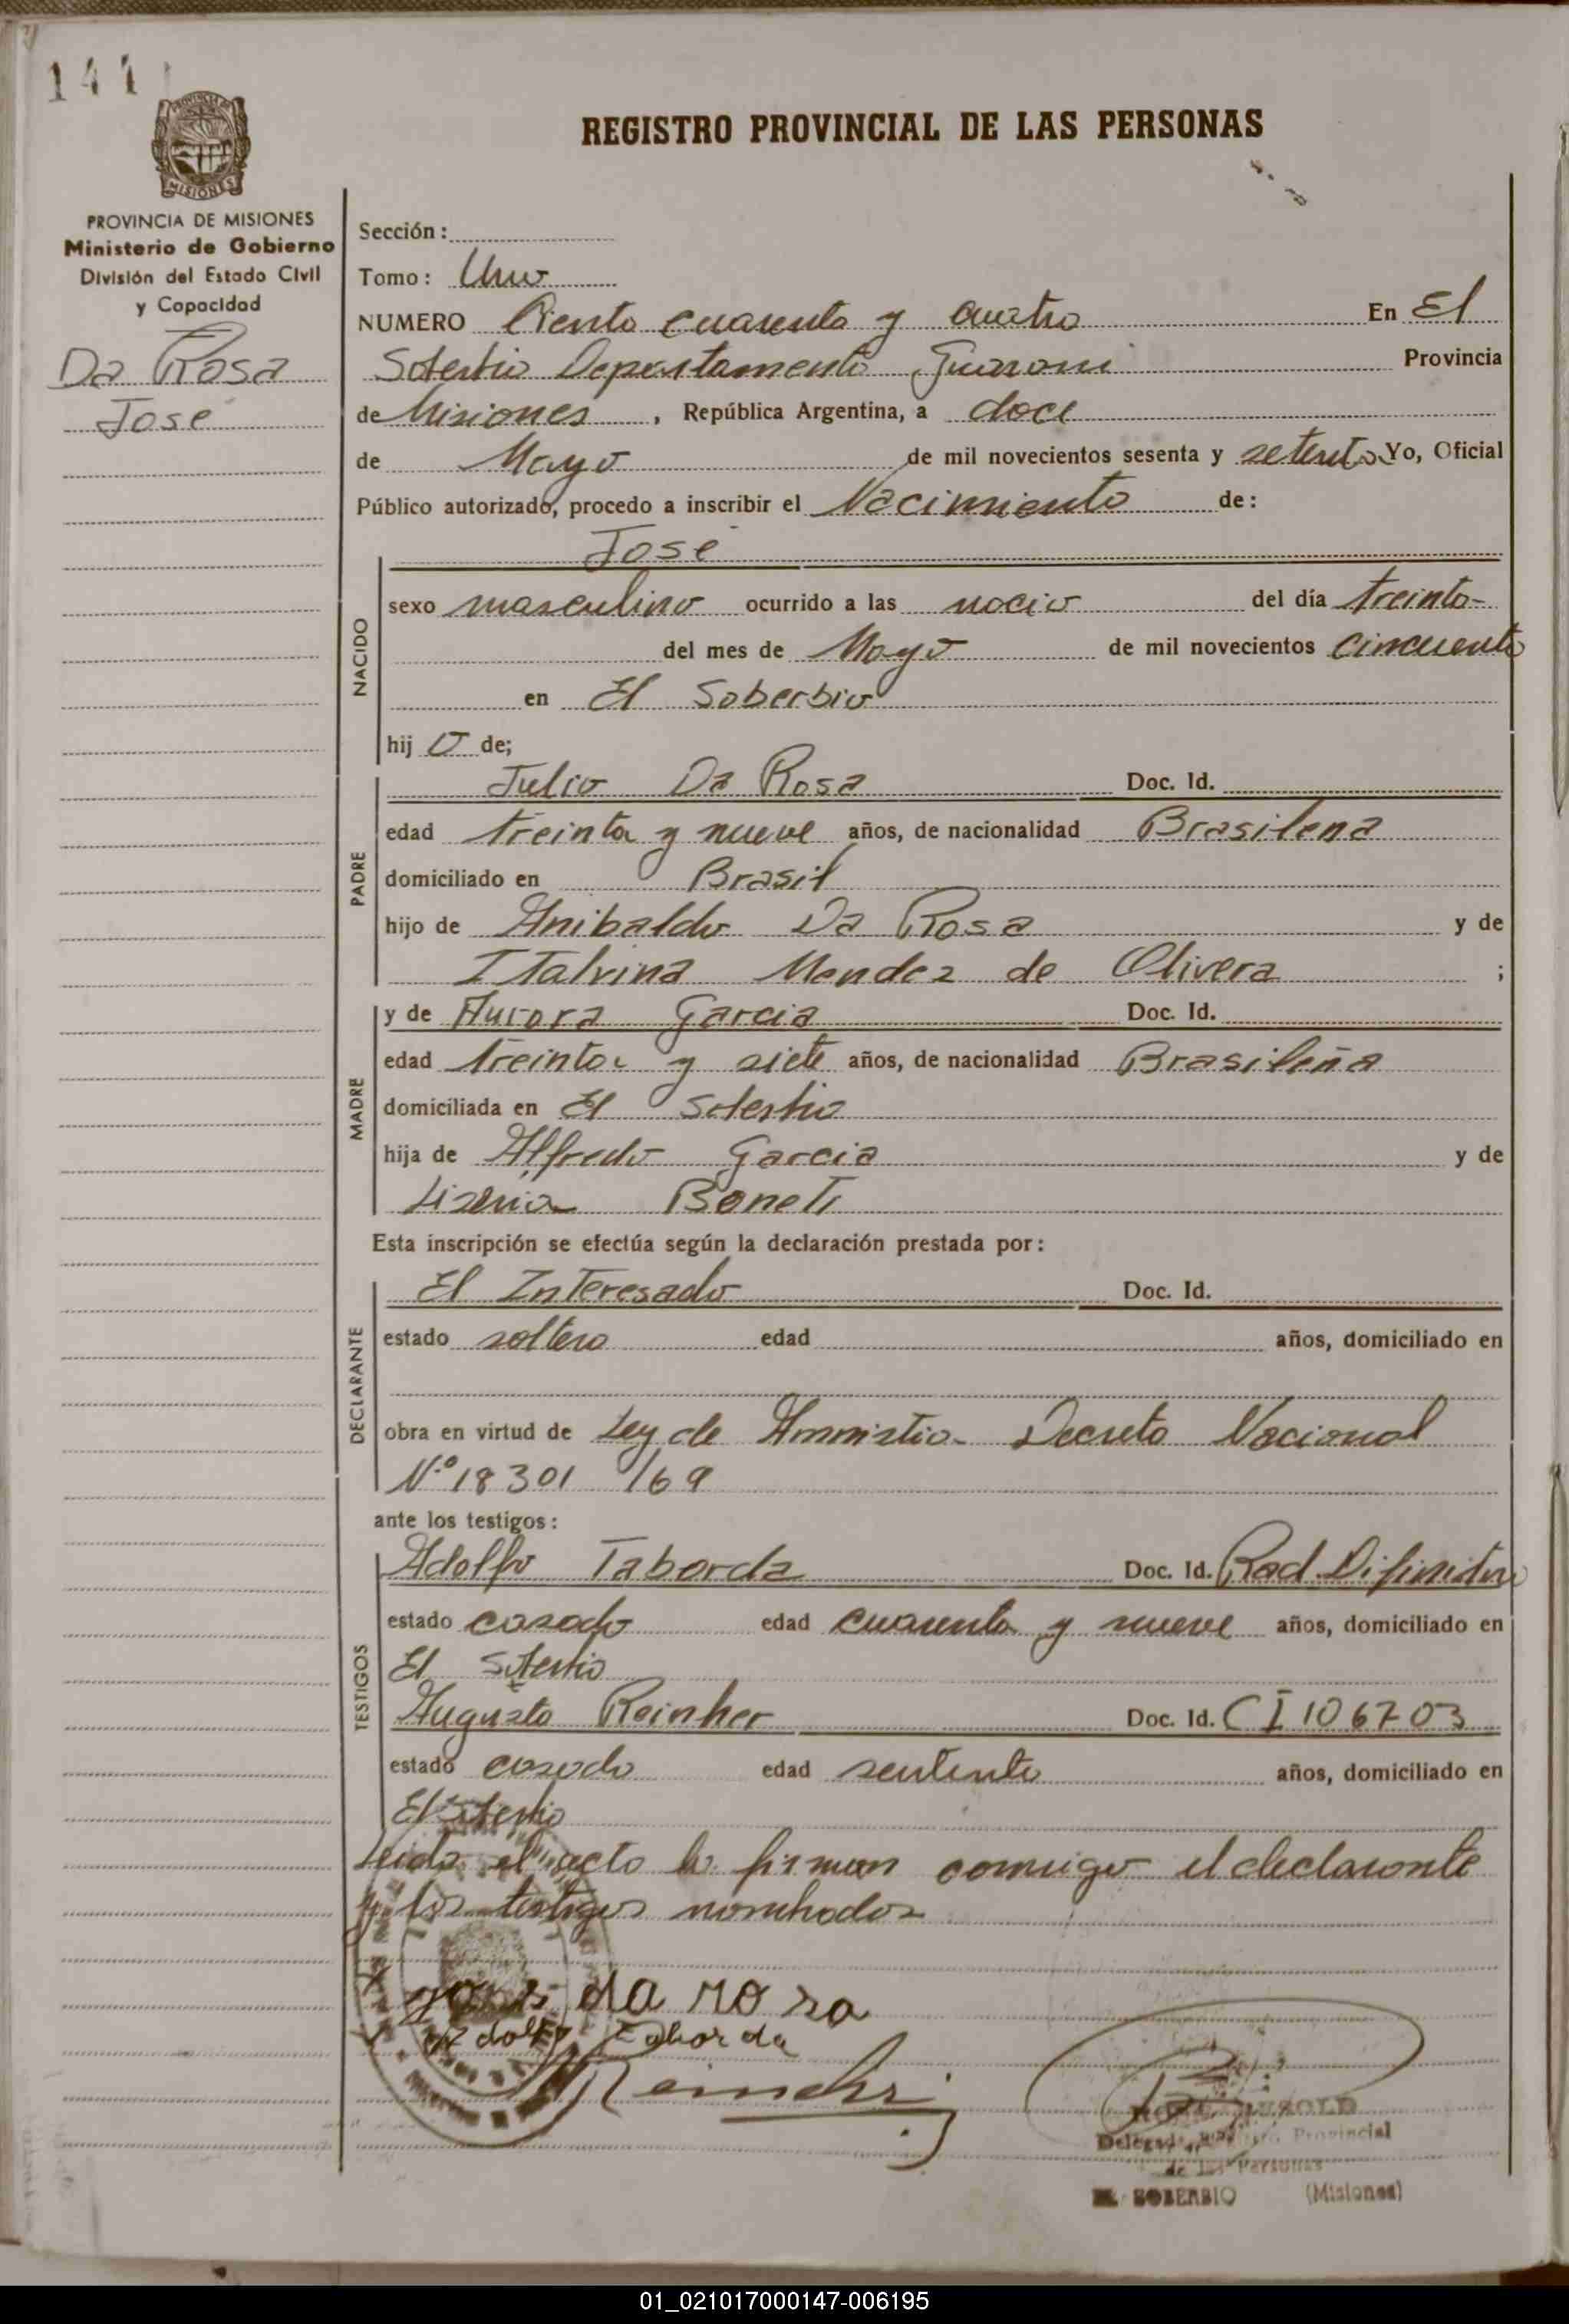 144
REGISTRO PROVINCIAL DE LAS PERSONAS
MISIONES
PROVINCIA DE MISIONES
Ministerio de Gobierno
División del Estado Civil
y Capacidad
Da Rosa
José
Sección:
Tomo: Uno
NUMERO Ciento cuarenta y cuatro En El
Soberbio Departamento Guarani Provincia
de Misiones, República Argentina, a doce
de Mayo de mil novecientos sesenta y setenta Yo, Oficial
Público autorizado, procedo a inscribir el Nacimiento de:
José
NACIDO
sexo masculino ocurrido a las nocio del día treinta-
del mes de Mayo de mil novecientos cincuenta
en El Soberbio
hij o de;
PADRE
Julio Da Rosa Doc. Id.
edad treinta y nueve años, de nacionalidad Brasilena
domiciliado en Brasil
hijo de Anibaldo Da Rosa y de
Italvina Mendez de Olivera ;
MADRE
y de Aurora Garcia Doc. Id.
edad treinta y siete años, de nacionalidad Brasileña
domiciliada en El Soberbio
hija de Alfredo Garcia y de
Boneti
Esta inscripción se efectúa según la declaración prestada por:
DECLARANTE
El Interesado Doc. Id.
estado soltero edad años, domiciliado en
obra en virtud de Ley de Amnistia Decreto Nacional
Nº 18301/69
ante los testigos:
TESTIGOS
Adolfo Taborda Doc. Id. Rad. Difinitiva
estado casado edad cuarenta y nueve años, domiciliado en
El Soberbio
Augusto Reinher Doc. Id. CI 106703
estado casado edad sententa años, domiciliado en
El Soberbio
Leida el acta la firman conmigo el declarante
y los testigos nombrados
José da rosa
Adolfo Taborda
Reinehr
Delegado Registro Provincial
de las Personas
EL SOBERBIO (Misiones)
01_021017000147-006195